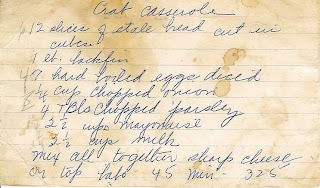 Crab casserole
12 slices of stale bread cut in
cubes
1 lb. backfin
4 hard boiled eggs diced
cup chopped onion
4 Tbls chopped parsley
2½ cups mayonaise
2½ cup milk
mix all together sharp cheese
on top bake 45 min - 325